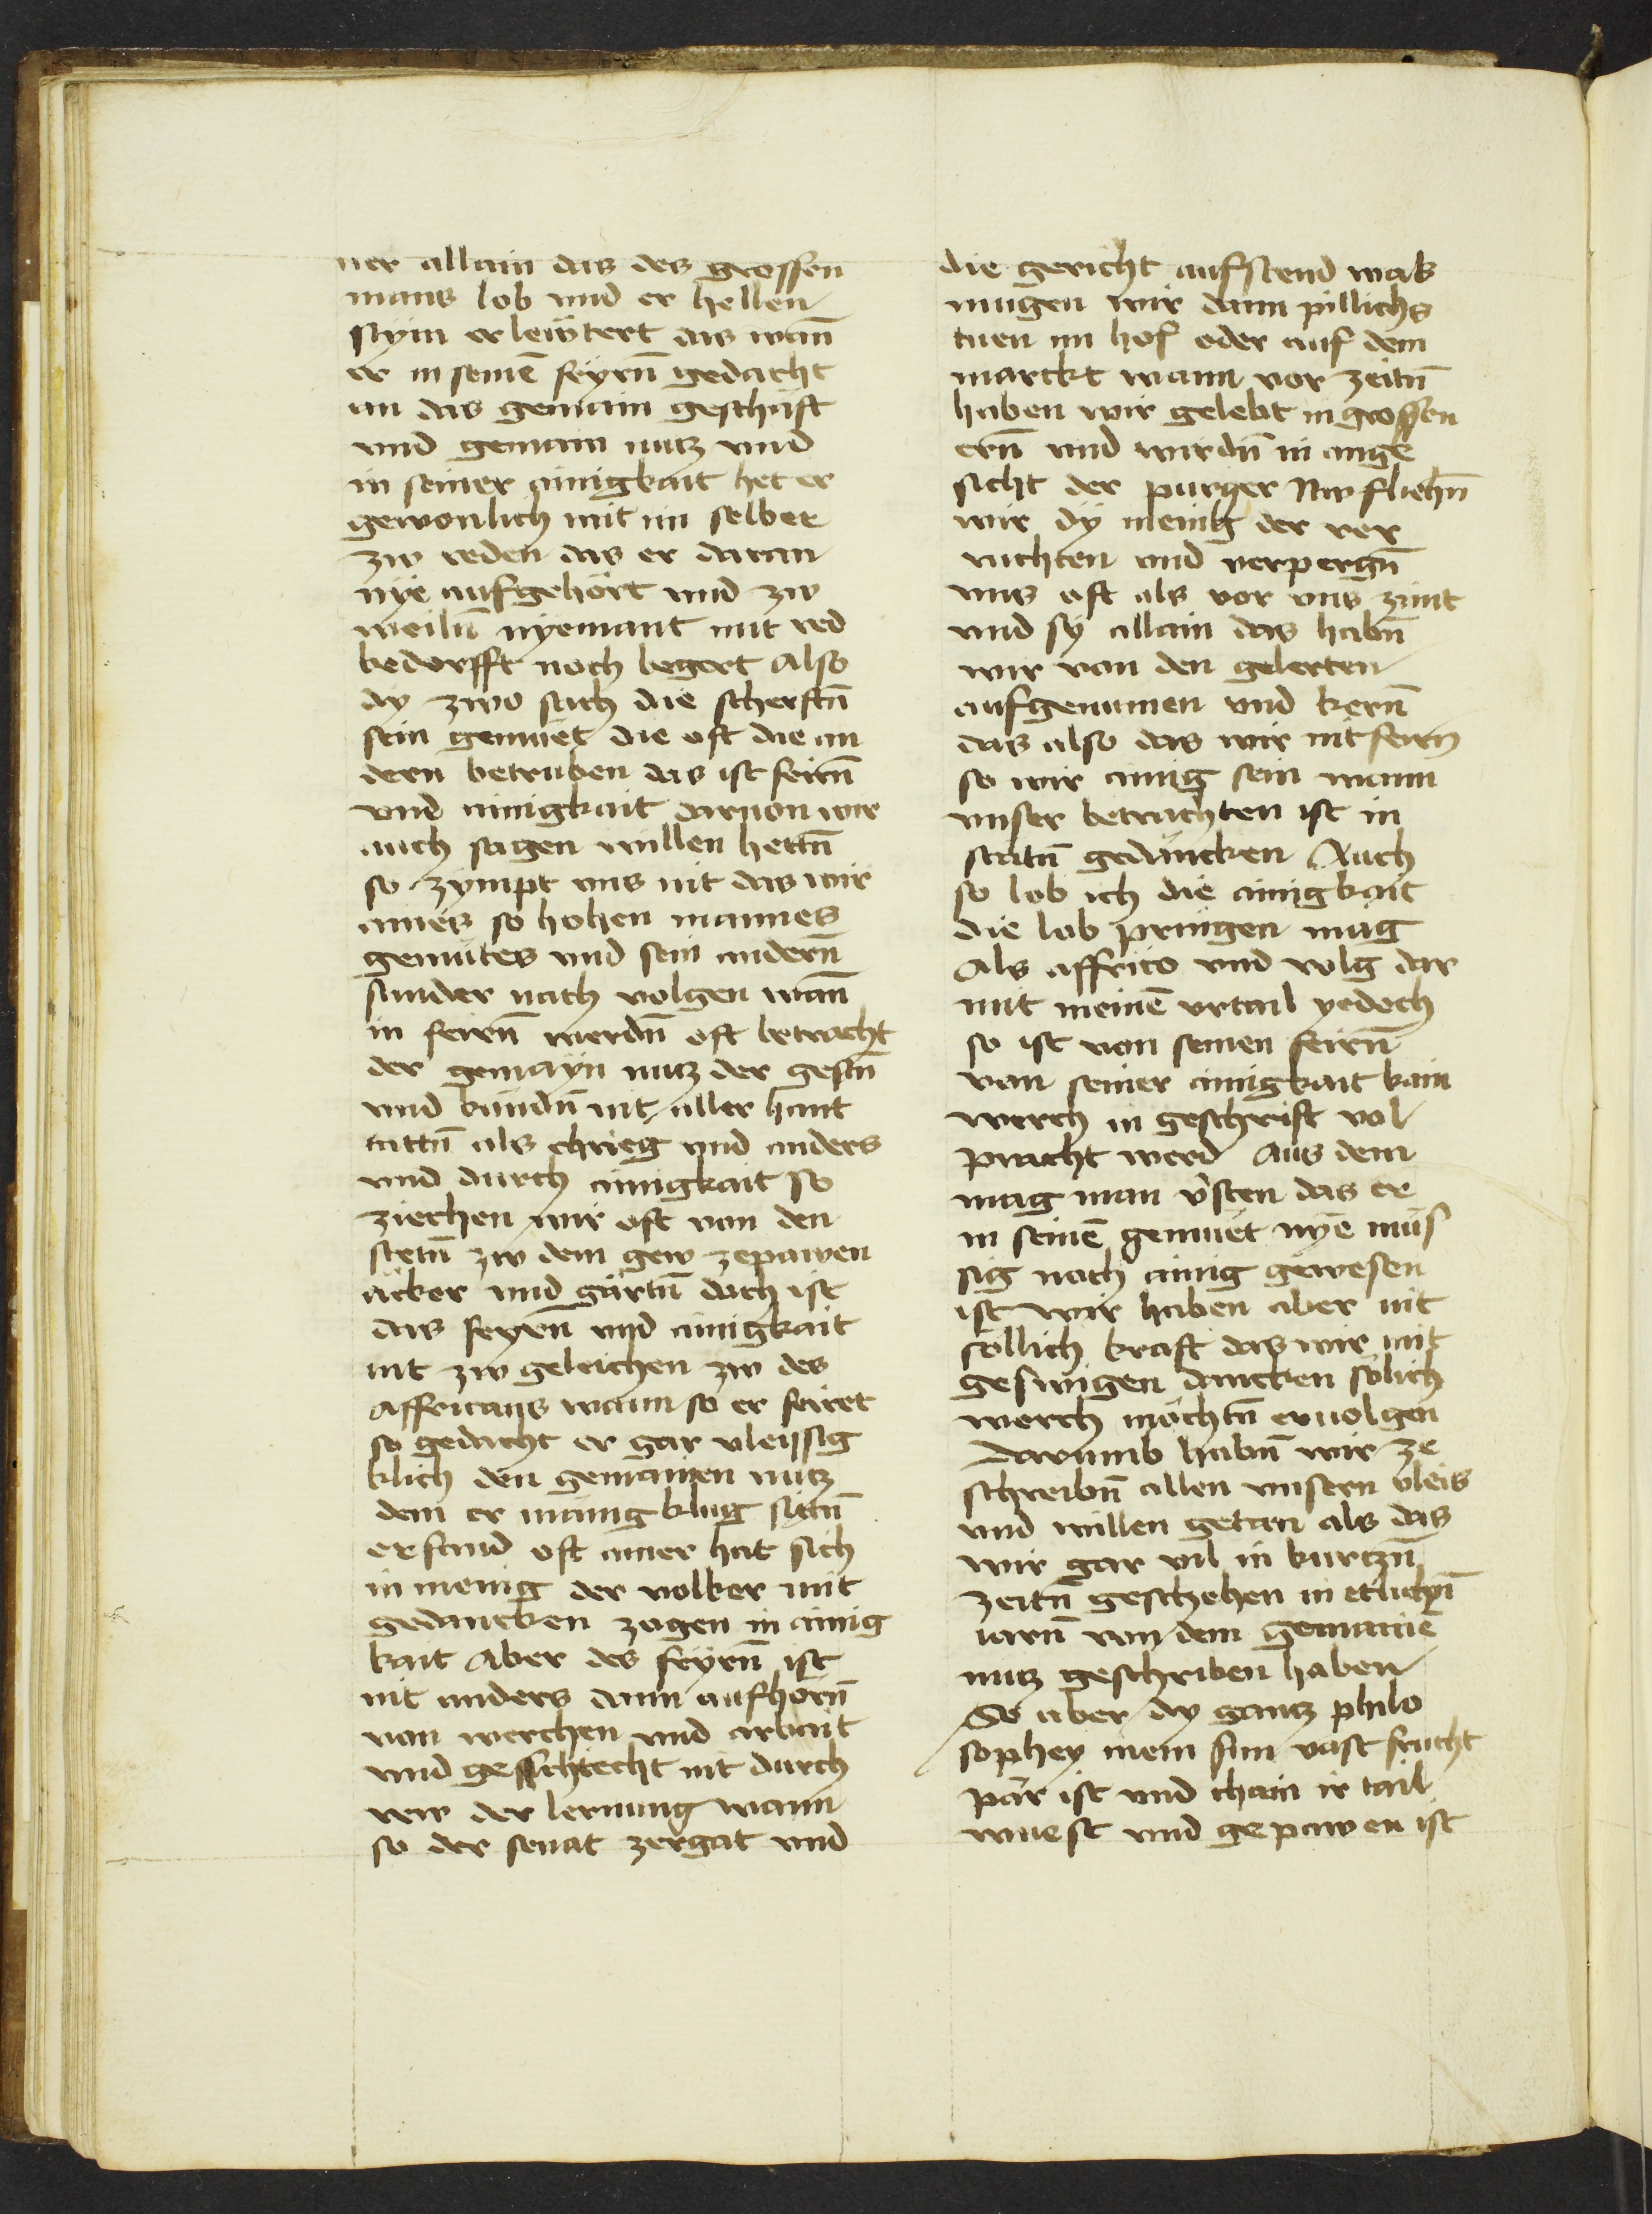 ner allain das des grossen
mans lob vnd er hellen
stym erlewtert als wan̄
er in seinē feyrn̄ gedacht
an das gemain geschäft
vnd gemain nutz vnd
in seiner ainigkait het er
gewonlich mit im selber
zw reden das er daran
nye aufgehört vnd zw
weiln̄ nyemant mit red
bedorfft noch begert Also
dy zwo sach die scherftn̄
sein gemüet die oft die an
dern betruben das ist feirn̄
vnd ainigkait daruon wir
auch sagen willen hettn̄
so zympt vns nit das wir
aines so hohen mannes
gemütes vnd sein andern̄
sunder nach volgen wan̄
in feirn̄ werdn̄ oft betracht
der gemayn nutz der gestn̄
vnd kündn̄ nit aller hant
tattn̄ als chrieg vnd anders
vnd durch ainigkait So
ziechen wir oft von den
stetn̄ zw dem gew zepawen
äcker vnd gärtn̄ doch ist
das feyrn̄ vnd ainigkait
nit zw geleichen zw des
Affricans wann so er feiret
so gedacht er gar vleissig
klich den gemainen nutz
dem er mänig klug sytn̄
erfand oft ainer hat sich
in menig der volker mit
gedancken zogen in ainig
kait Aber des feyrn̄ ist
nit anders dann aufhörn̄
von werchen vnd arbait
vnd geschlecht nit durch
rew der lernung wann
so der senat zergat vnd
die gericht aufstend was
mugen wir dann pillichs
tuen im hof oder auf dem
marckt wann vor zeitn̄
haben wir gelebt in grossen
ern̄ vnd wirdn̄ in ange
sicht der purger Nw fliehn̄
wir dy menig der ver
ruchten vnd verpergn̄
vns oft als vor vns zimt
vnd sy allain das habn̄
wir von den gelerten
aufgenumen vnd kern̄
das also das wir nit feirn
so wir ainig sein wann
vnser betrachten ist in
statn̄ gedäncken Auch
so lob ich die ainigkait
die lob pringen mag
Als affrico vnd volg dar
mit meinē vrtail yedoch
so ist von seinen feirn̄
von seiner ainigkait kain
werch in geschrift vol
pracht werd Aus dem
mag man v̓sten das er
in seinē gemüet nye müs
sig noch ainig gewesen
ist wir haben aber nit
söllich kraft das wir mit
geswigen dancken sölich
werch möchtn̄ ervolgen
Darumb habn̄ wir ze
schreibn̄ allen vnsern vleis
vnd willen getan als das
wir gar vil in kurtzn̄
zeitn̄ geschehen in etlichn̄
iarn̄ von dem gemainē
nutz geschriben haben
So aber dy gantz philo
sophey mein sun vast frucht
pär ist vnd chain ir tail
wuest vnd gepawen ist